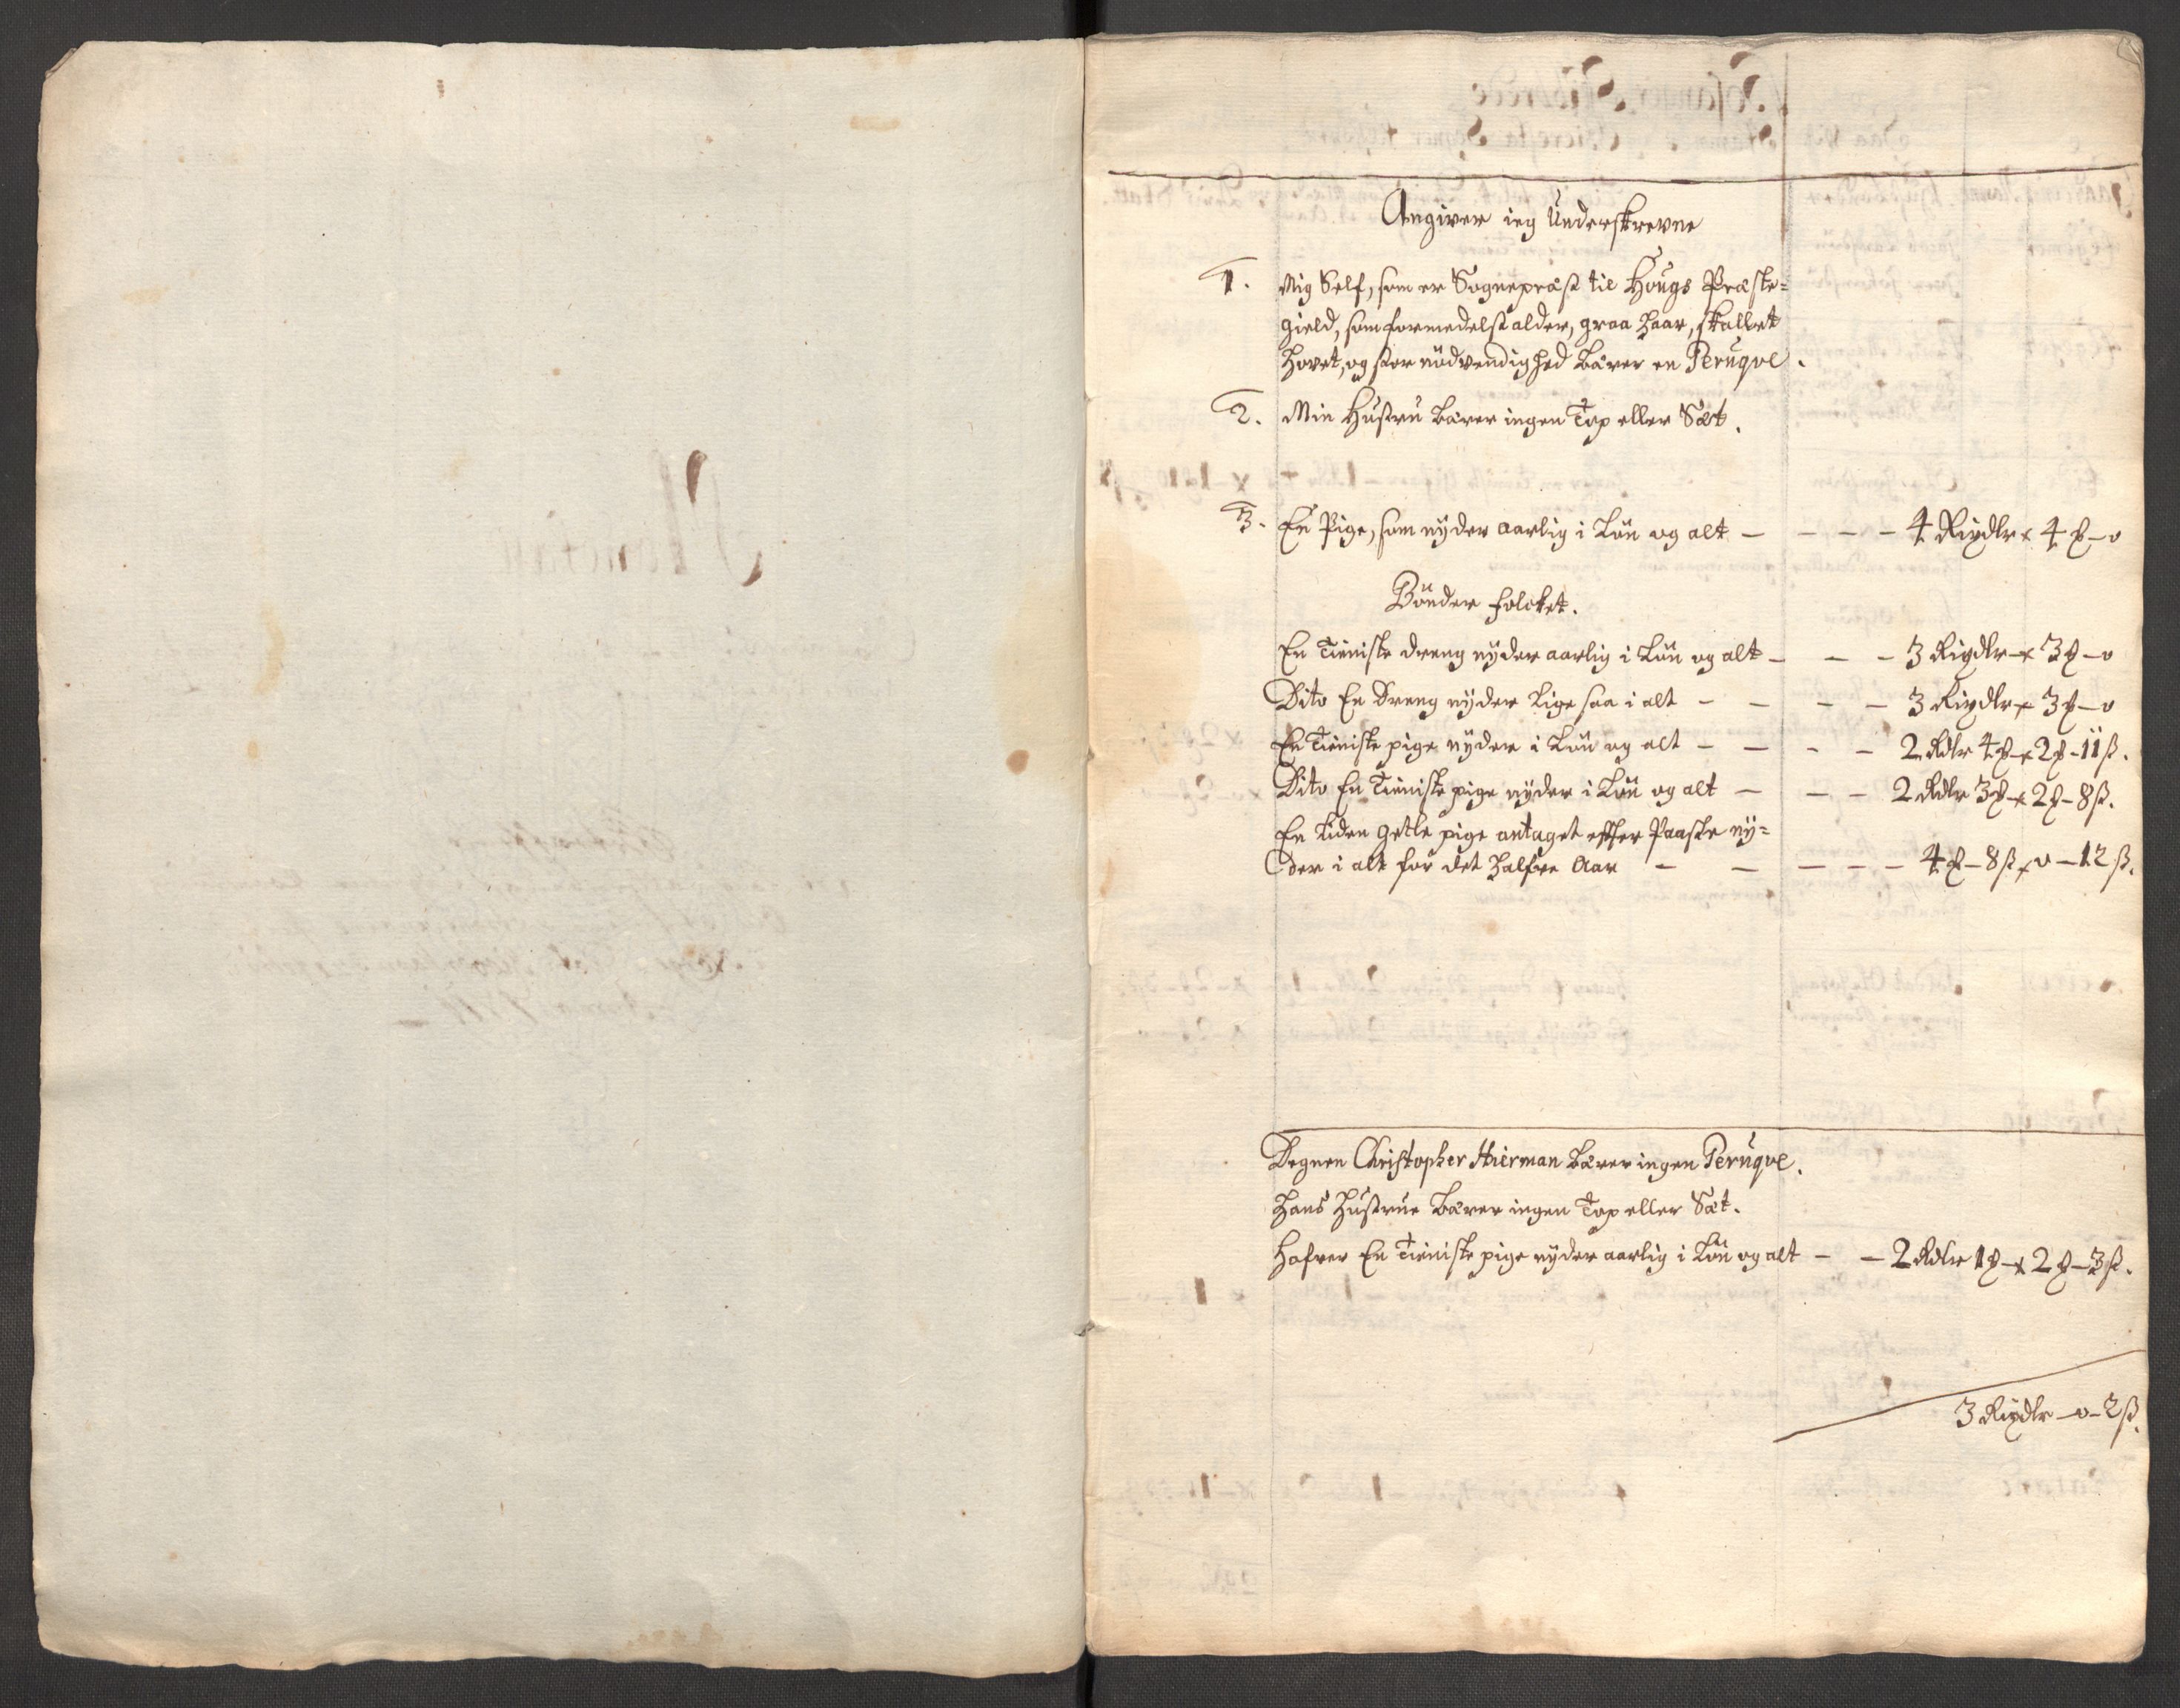 Angiver ieg Underskrevne
1. Mig Self, som er Sognepræst til Hougs Præste-
gield, som formedelst alder, graa Haar, skallet
Hovet, og stor nödvendighed bærer en Peruqve.
2. Min Hustru bærer ingen Top eller Sæt.
3. En Pige, som nyder aarlig i Lön og alt — — — — 4 Rixdlr × 4 ꝣ — o
Bönder folcket.
En Tieniste dreng nyder aarlig i Lön og alt — — — 3 Rixdlr × 3 ꝣ — o
Dito En Dreng nyder lige saa i alt — — — — 3 Rixdlr × 3 ꝣ — o
En Tieniste pige nyder i Lön og alt — — — — 2 Rdlr 4 ꝣ × 2 ꝣ — 11 ß.
Dito En Tieniste pige nyder i Lön og alt — — — 2 Rdlr 3 ꝣ × 2 ꝣ — 8 ß.
En liden gietle pige antaget efter Paaske ny-
der i alt for det halfve Aar — — — — — 4 ꝣ — 8 ß × o — 12 ß.
Degnen Christopher Hierman bærer ingen Peruqve.
Hans Hustrue bærer ingen Top eller Sæt.
Hafver En Tieniste pige nyder aarlig i Lön og alt — — 2 Rdlr 1 ꝣ × 2 ꝣ — 3 ß.
3 Rixdlr — o — 2 ß.